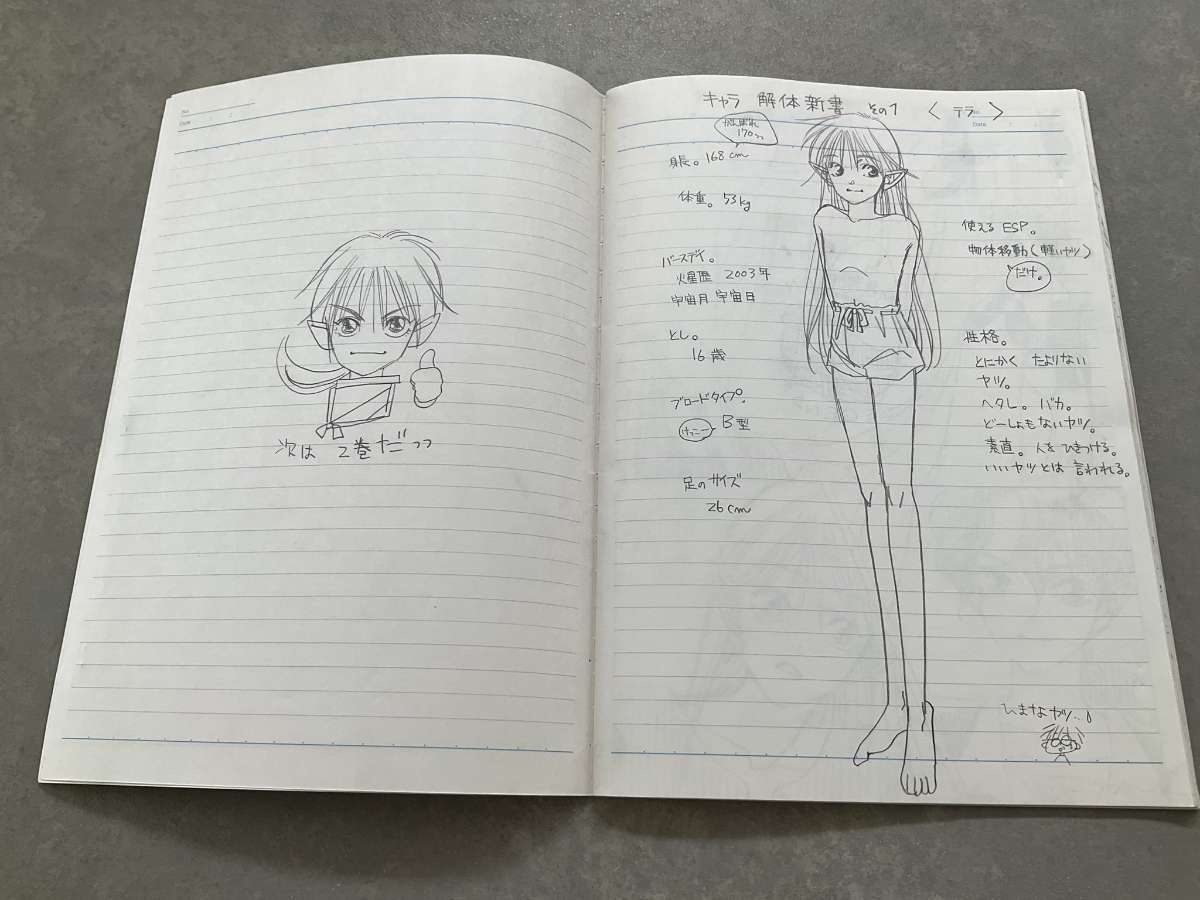 次は 2巻だっっ
No.
Date
キャラ 解体新書 その1 〈 テラ 〉
Date
がんばれ
170cm
身長。168cm
体重。53kg
バースデイ。
火星歴 2003年
宇宙月 宇宙日
とし。
16歳
ブロードタイプ。
B型
足のサイズ
26cm
使える ESP。
物体移動(軽いヤツ)
だけ。
性格。
とにかく たよりない
ヤツ。
ヘタレ。バカ。
どーしょもないヤツ。
素直。人をひきつける。
いいヤツとは 言われる。
ひまなヤツ…